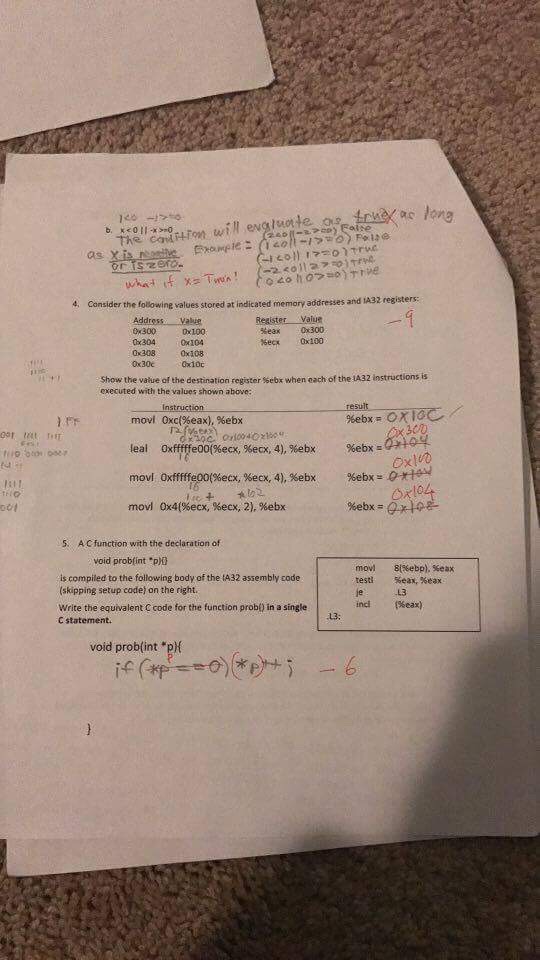 1<0 -1>=0
b. x<0 || -x>=0
The condition will evaluate as true as long
as x is negative
or is zero.
Example = (2<0||-2>=0) False
(1<0||-1>=0) False
(-1<0|| 1>=0) True
(-2<0||2>=0) True
(0<0||0>=0) True
what if x = Tmin!
4. Consider the following values stored at indicated memory addresses and IA32 registers:
-9
Address Value Register Value
0x300 0x100 %eax 0x300
0x304 0x104 %ecx 0x100
0x308 0x108
0x30c 0x10c
1111
1110
Show the value of the destination register %ebx when each of the IA32 instructions is
executed with the values shown above:
Instruction result
movl 0xc(%eax), %ebx %ebx = 0x10C
12(%eax)
0x30C 0x100+0x100*4
0x300
leal 0xfffffe00(%ecx, %ecx, 4), %ebx %ebx = 0x104
16
0x100
movl 0xfffffe00(%ecx, %ecx, 4), %ebx %ebx = 0x104
16
0x104
movl 0x4(%ecx, %ecx, 2), %ebx %ebx = 0x108
1111
1110
001
5. A C function with the declaration of
void prob(int *p){}
is compiled to the following body of the IA32 assembly code
(skipping setup code) on the right.
Write the equivalent C code for the function prob() in a single
C statement.
movl 8(%ebp), %eax
testl %eax, %eax
je .L3
incl (%eax)
.L3:
void prob(int *p){
p
if (*p == 0) (*p)++; -6
}